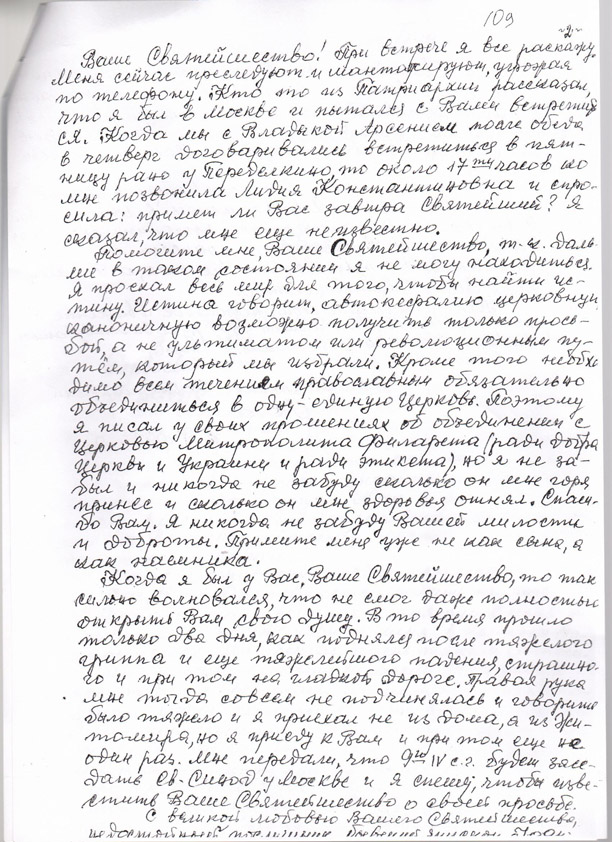 109
-2-
Ваше Святейшество! При встрече я все раскажу.
Меня сейчас преследуют и шантажируют, угрожая
по телефону. Кто то из Патриархии рассказал,
что я был в Москве и пытался с Вами встретит
ся. Когда мы с Владыкой Арсением после обеда
в четверг договаривались встретиться в пят-
ницу рано у Переделкино, то около 17ти часов ко
мне позвонила Лидия Константиновна и спро-
сила: примет ли Вас завтра Святейший? Я
сказал, что мне еще неизвестно.
Помогите мне, Ваше Святейшество, т.к. даль-
ше в таком состоянии я не могу находиться.
Я проехал весь мир для того, чтобы найти ис-
тину. Истина говорит, автокефалию церковную
каноничную возможно получить только прось-
бой, а не ультиматом или революционным пу-
тём, который мы избрали. Кроме того необхо
димо всем течением православным обязательно
объединиться в одну-единую Церковь. Поэтому
я писал у своих прошениях об объединении с
Церковью Митрополита Филарета (ради добра
Церкви и Украины и ради этикета), но я не за-
был и никогда не забуду сколько он мне горя
принес и сколько он мне здоровья отнял. Спаси-
бо Вам. Я никогда не забуду Вашей милости
и доброты. Примите меня уже не как сына, а
как наемника.
Когда я был у Вас, Ваше Святейшество, то так
сильно волновался, что не смог даже полностью
открыть Вам свою душу. В то время прошло
только два дня, как поднялся после тяжелого
гриппа и еще тяжелейшого падения, страшно-
го и при том на гладкой дороге. Правая рука
мне тогда совсем не подчинялась и говорить
было тяжело и я приехал не из дома, а из Жи-
томира, но я приеду к Вам и при том еще не
один раз. Мне передали, что 9го IV с.г. будет засе-
дать Св-Синод у Москве и я спешу, чтобы изве-
стить Ваше Святейшество о своей просьбе.
С великой любовью Вашего Святейшества,
недостойный послушник